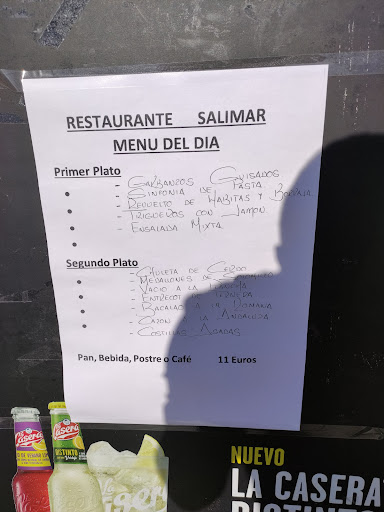 RESTAURANTE SALIMAR
MENU DEL DIA
Primer Plato
- GARBANZOS GUISADOS
- SINFONIA DE PASTA
- REVUELTO DE HABITAS Y
- TRIGUEROS CON JAMON
- ENSALADA MIXTA
Segundo Plato
- CHULETA DE CERDO
- MEDALLONES DE
- VACIO A LA
- ENTRECOT DE TERNERA
- BACALAO A LA ROMANA
- CAZON A LA ANDALUZA
- COSTILLAS ASADAS
Pan, Bebida, Postre o Café 11 Euros
la Casera
la Casera
DISTINTO
NUEVO
LA CASERA
DISTINTO